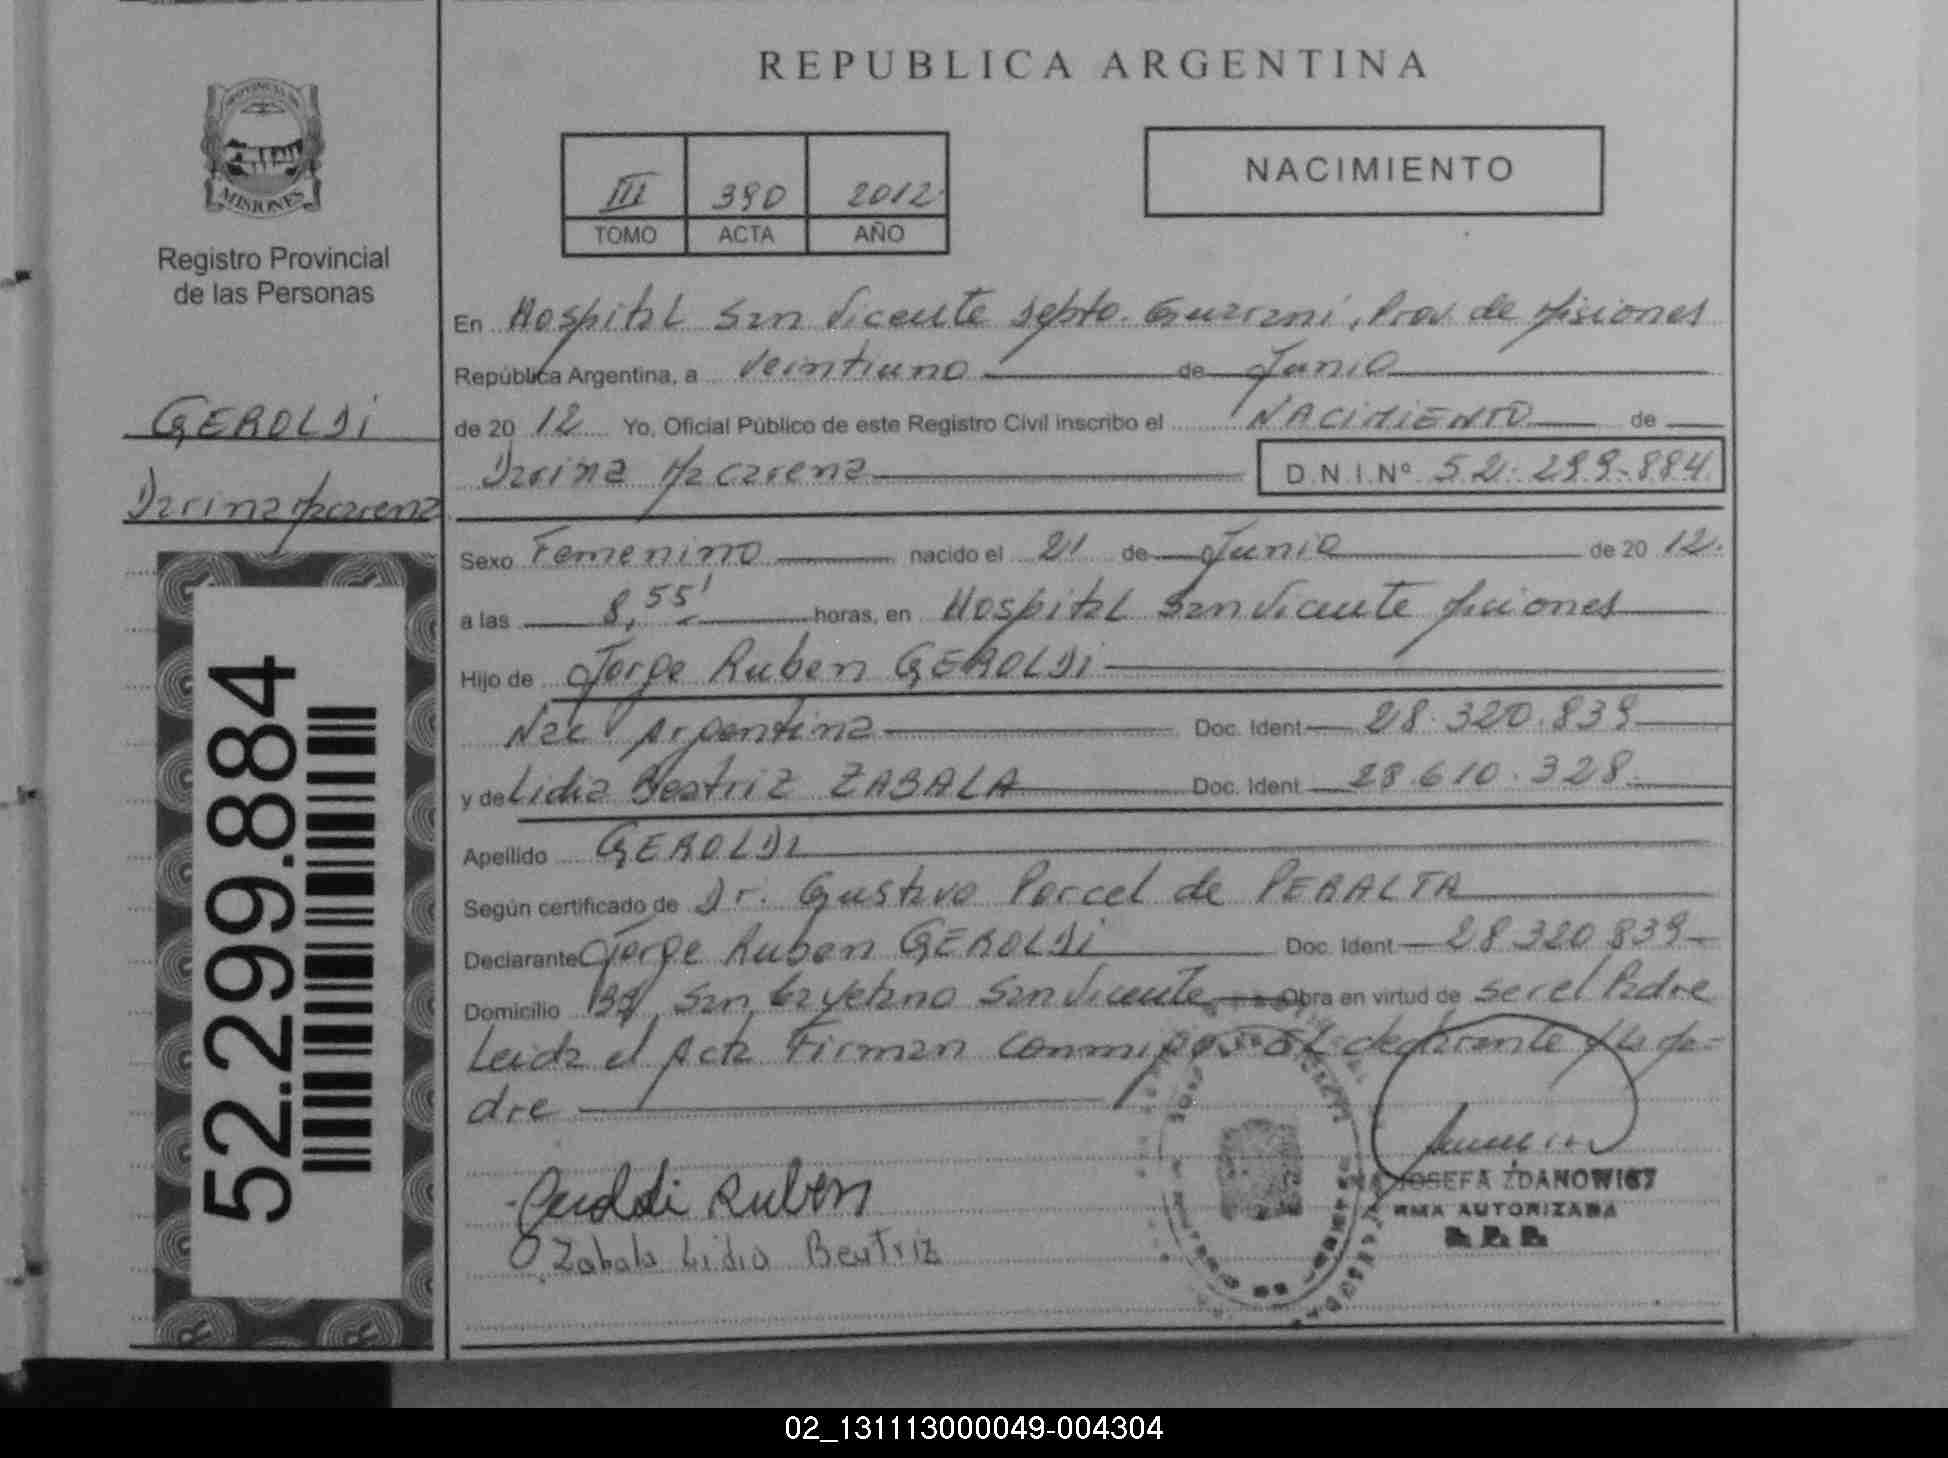 REPUBLICA ARGENTINA
PROVINCIA DE
MISIONES
Registro Provincial
de las Personas
III 390 2012
TOMO ACTA AÑO
NACIMIENTO
GEROLDI
Darina Macarena
52.299.884
En Hospital San Vicente Depto. Guarani, Prov. de Misiones
República Argentina, a veintiuno de Junio
de 20 12 Yo, Oficial Público de este Registro Civil inscribo el NACIMIENTO de
Darina Macarena D.N.I.Nº 52.299.884
Sexo Femenino nacido el 21 de Junio de 20 12.
a las 8,55' horas, en Hospital San Vicente Misiones
Hijo de Jorge Ruben GEROLDI
Nac. Argentina Doc. Ident 28.320.839
y de Lidia Beatriz ZABALA Doc. Ident 28.610.328
Apellido GEROLDI
Según certificado de Dr. Gustavo Porcel de PERALTA
Declarante Jorge Ruben GEROLDI Doc. Ident 28320839
Domicilio Bº San Cayetano San Vicente Obra en virtud de ser el Padre
Leida el Acta Firman conmigo el declarante y la Ma=
dre
Geroldi Ruben
Zabala Lidia Beatriz
JOSEFA ZDANOWICZ
FIRMA AUTORIZADA
R. P. P.
02_131113000049-004304